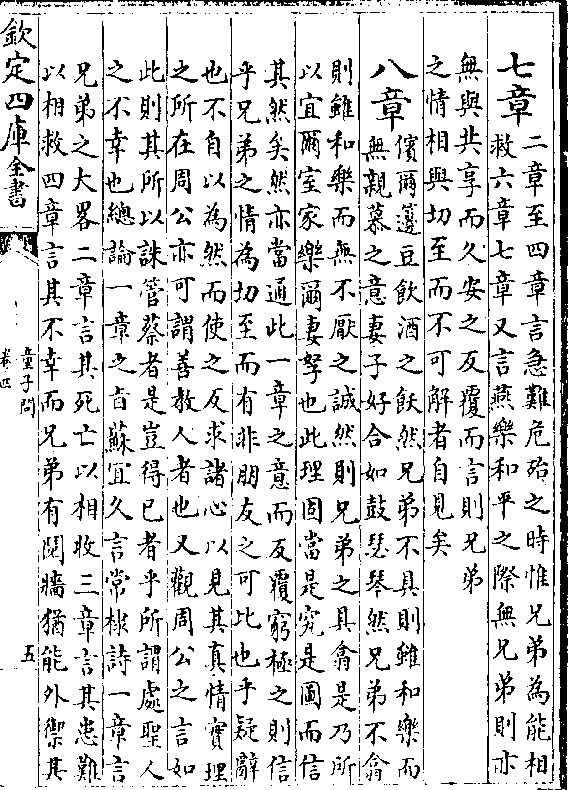 七章二章至四章言急難危殆之時惟兄弟為能相
救六章七章又言燕樂和平之際無兄弟則亦
無與共享而久安之反覆而言則兄弟
之情相與切至而不可解者自見矣
八章儐爾籩豆飲酒之飫然兄弟不具則雖和樂而
無親慕之意妻子好合如鼓瑟琴然兄弟不翕
則雖和樂而無不厭之誠然則兄弟之具翕是乃所
以宜爾室家樂爾妻孥也此理固當是究是圖而信
其然矣然亦當通此一章之意而反覆窮極之則信
乎兄弟之情為切至而有非朋友之可比也乎疑辭
也不自以為然而使之反求諸心以見其真情實理
之所在周公亦可謂善教人者也又觀周公之言如
此則其所以誅管蔡者是豈得已者乎所謂處聖人
之不幸也總論一章之㫖蘇宜久言常棣詩一章言
兄弟之大畧二章言其死亡以相收三章言其患難
以相救四章言其不幸而兄弟有鬩牆猶能外禦其
欽定四庫全書
童子問
卷四
五